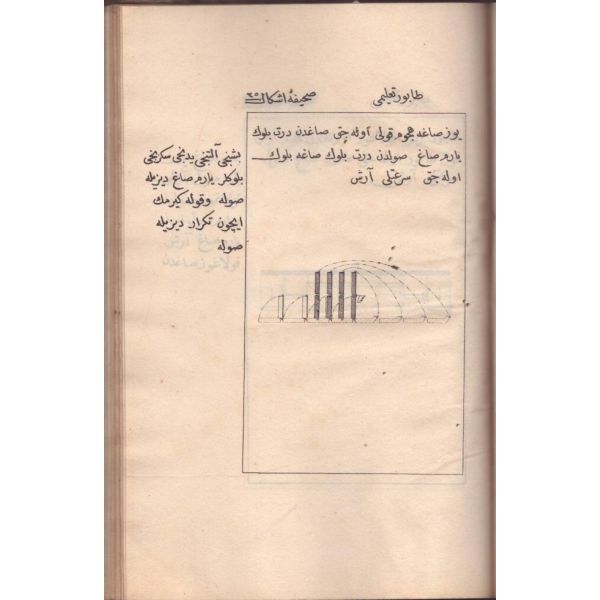 طابور تعليمى
صحيفهٔ اشكال ٣٥
يوز صاغه هجوم قولى اوله جق صاغدن درت بلوك
يارم صاغ صولدن درت بلوك صاغه بلوك
اوله جق سرعتلى آرش
بشنجى آلتنجى يدنجى سكزنجى
بلوكلر يارم صاغ ديزيله
صوله وقوله كيرمك
ايچون تكرار ديزيله
صوله